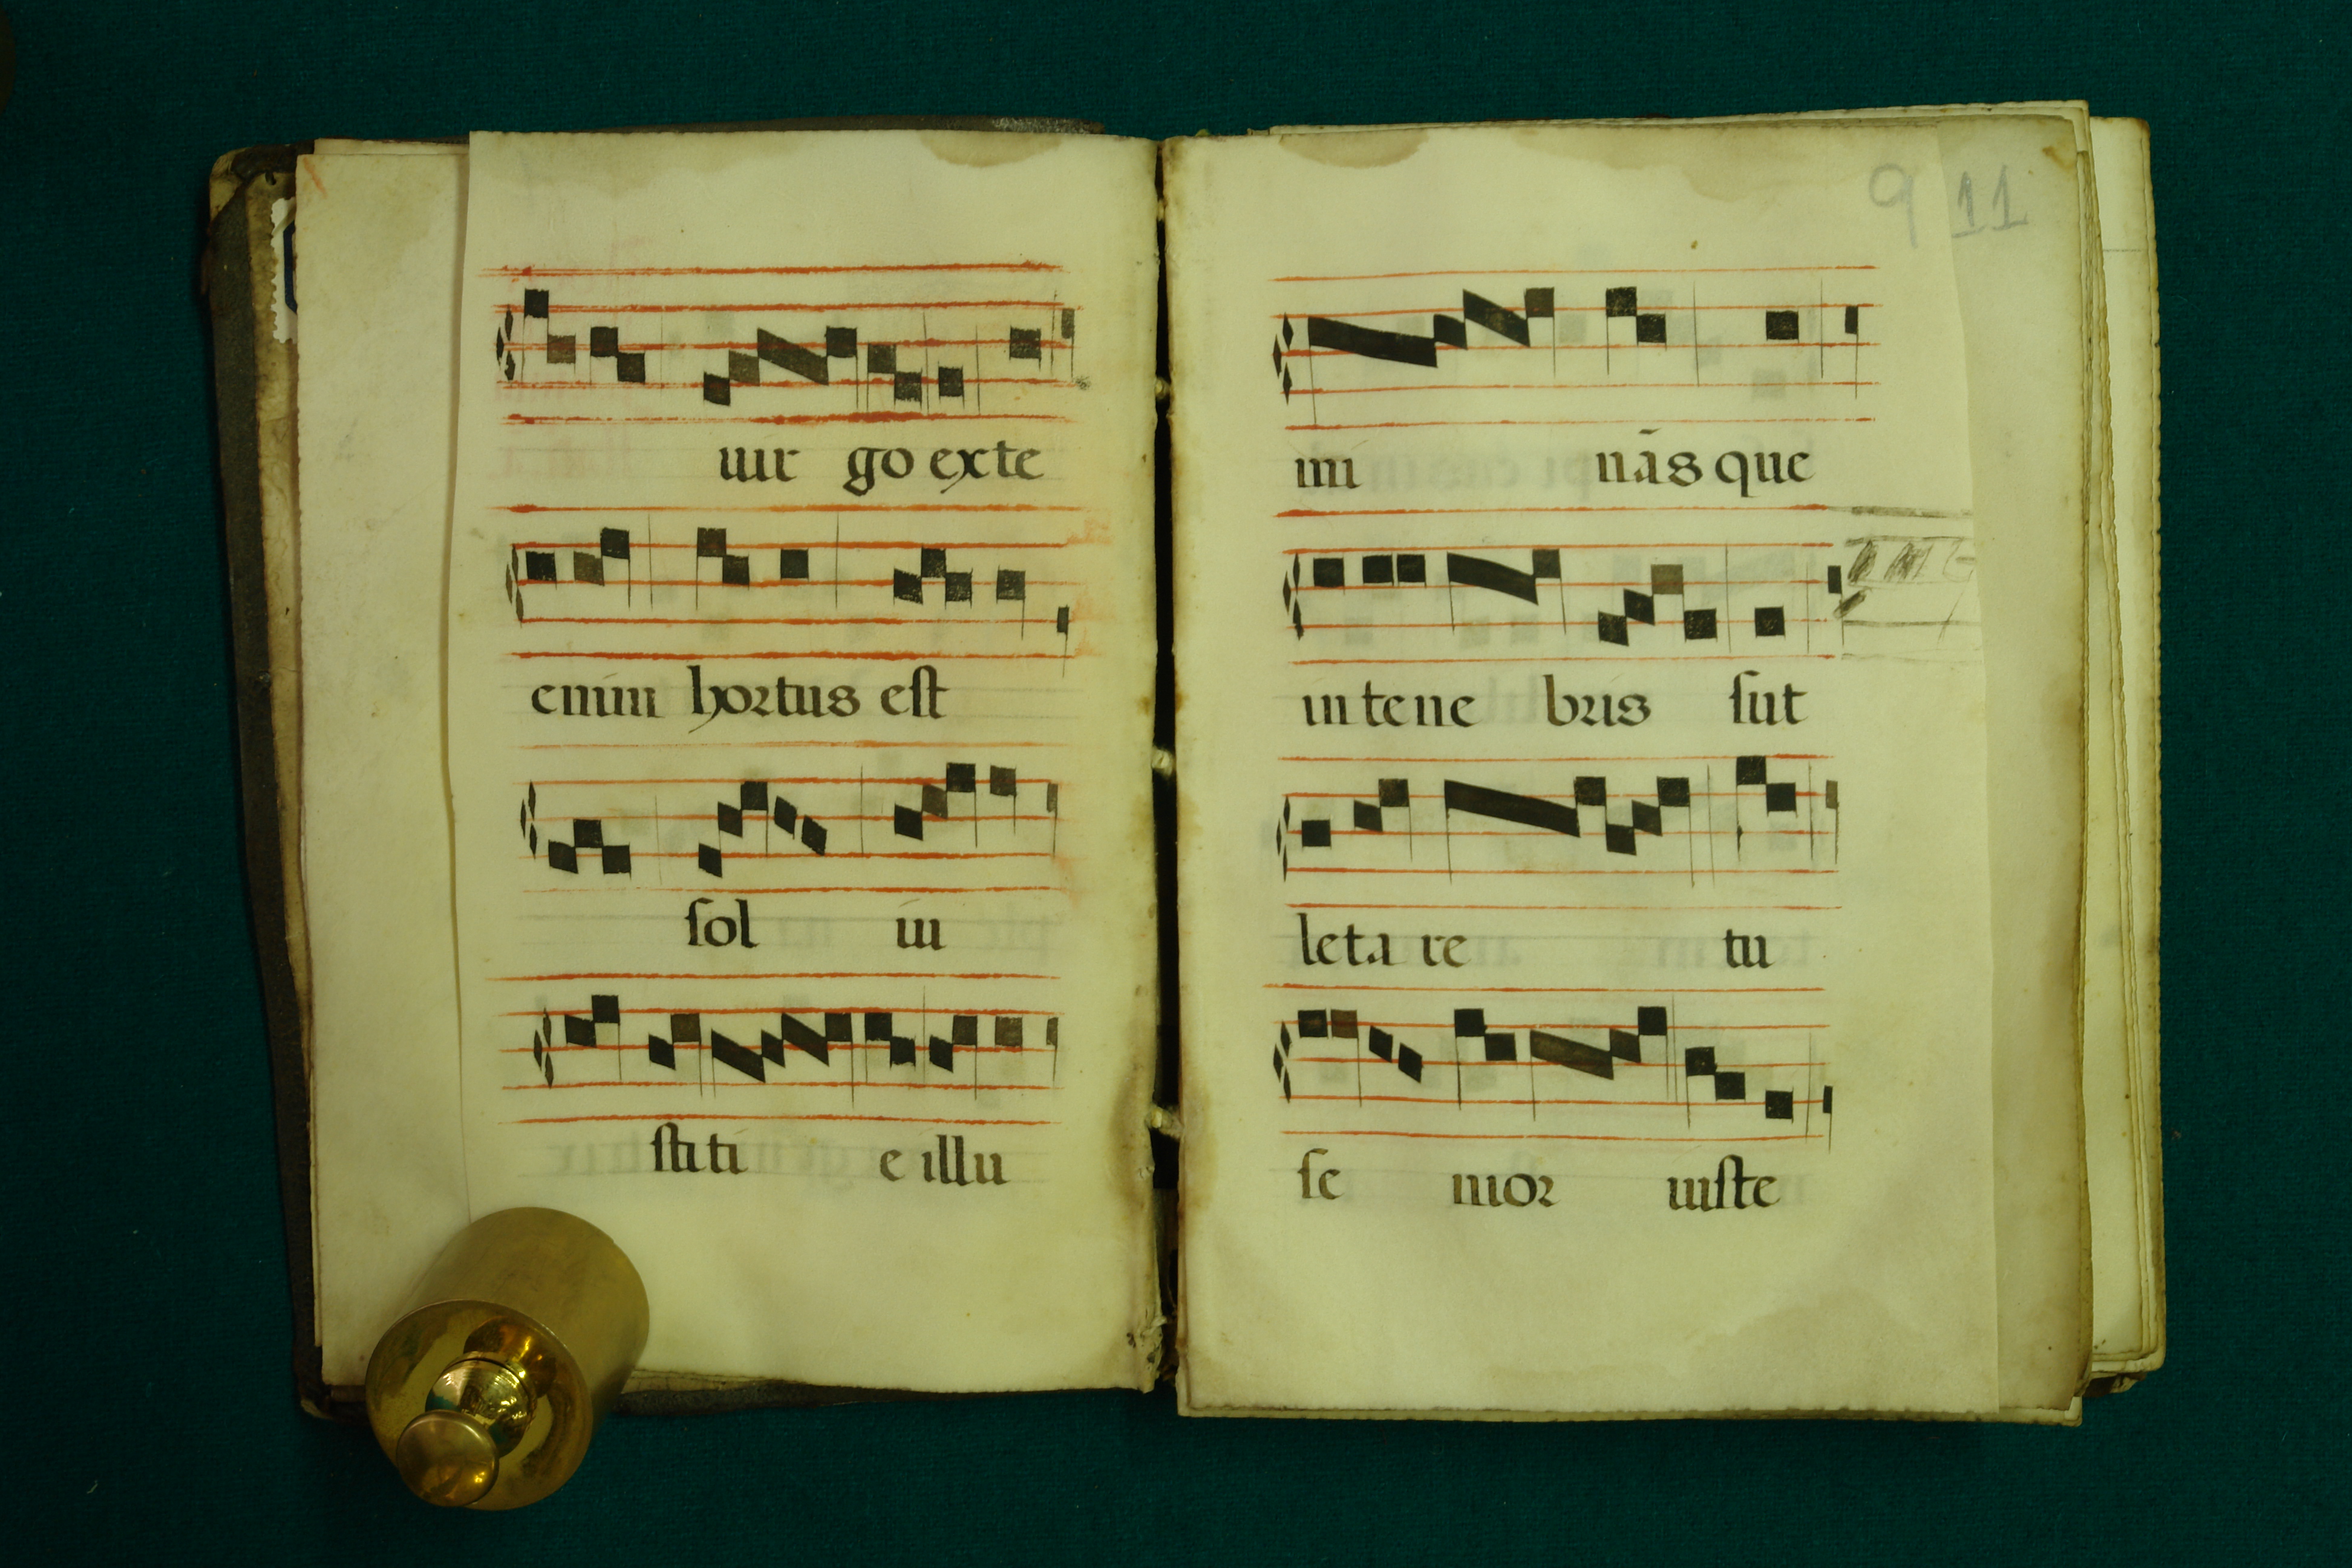 uir go exte
enim hortus est
sol iu
stiti e illu
9 11
mi nās que
in tene bris sūt
leta re tu
se nior iuste